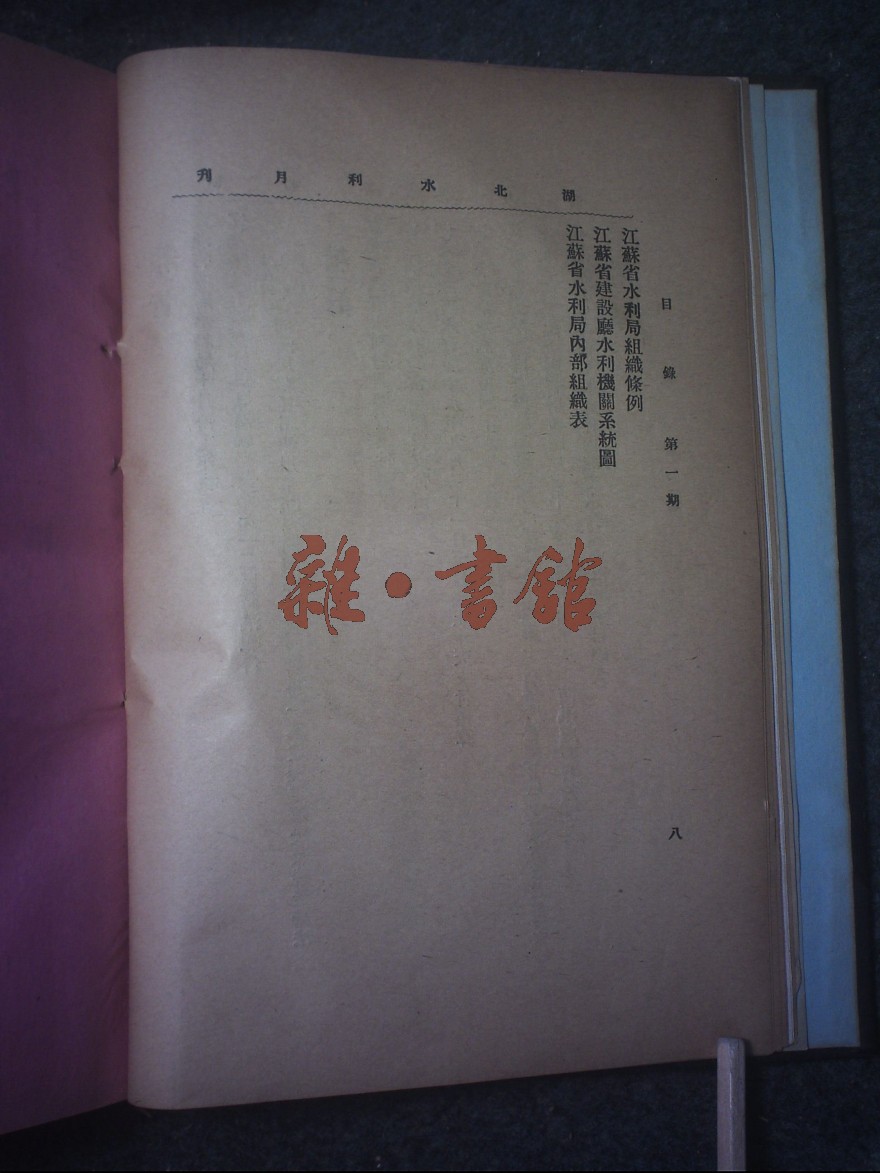 湖北水利月刊
目錄 第一期
八
江蘇省水利局組織條例
江蘇省建設廳水利機關系統圖
江蘇省水利局內部組織表
雜·書館